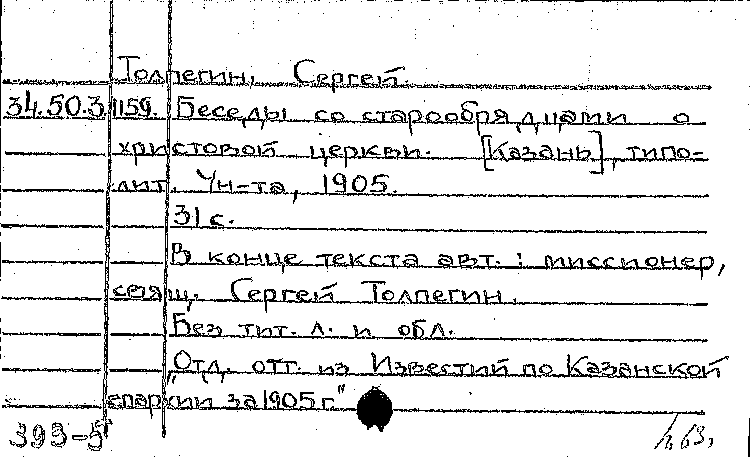 Толпегин, Сергей.
34.50.3.1159. Беседы со старообрядцами о
христовой церкви. [Казань], типо-
лит. Ун-та, 1905.
31 с.
В конце текста авт.: миссионер,
свящ. Сергей Толпегин.
Без тит. л. и обл.
"Отд. отт. из Известий по Казанской
епархии за 1905 г."
393-5